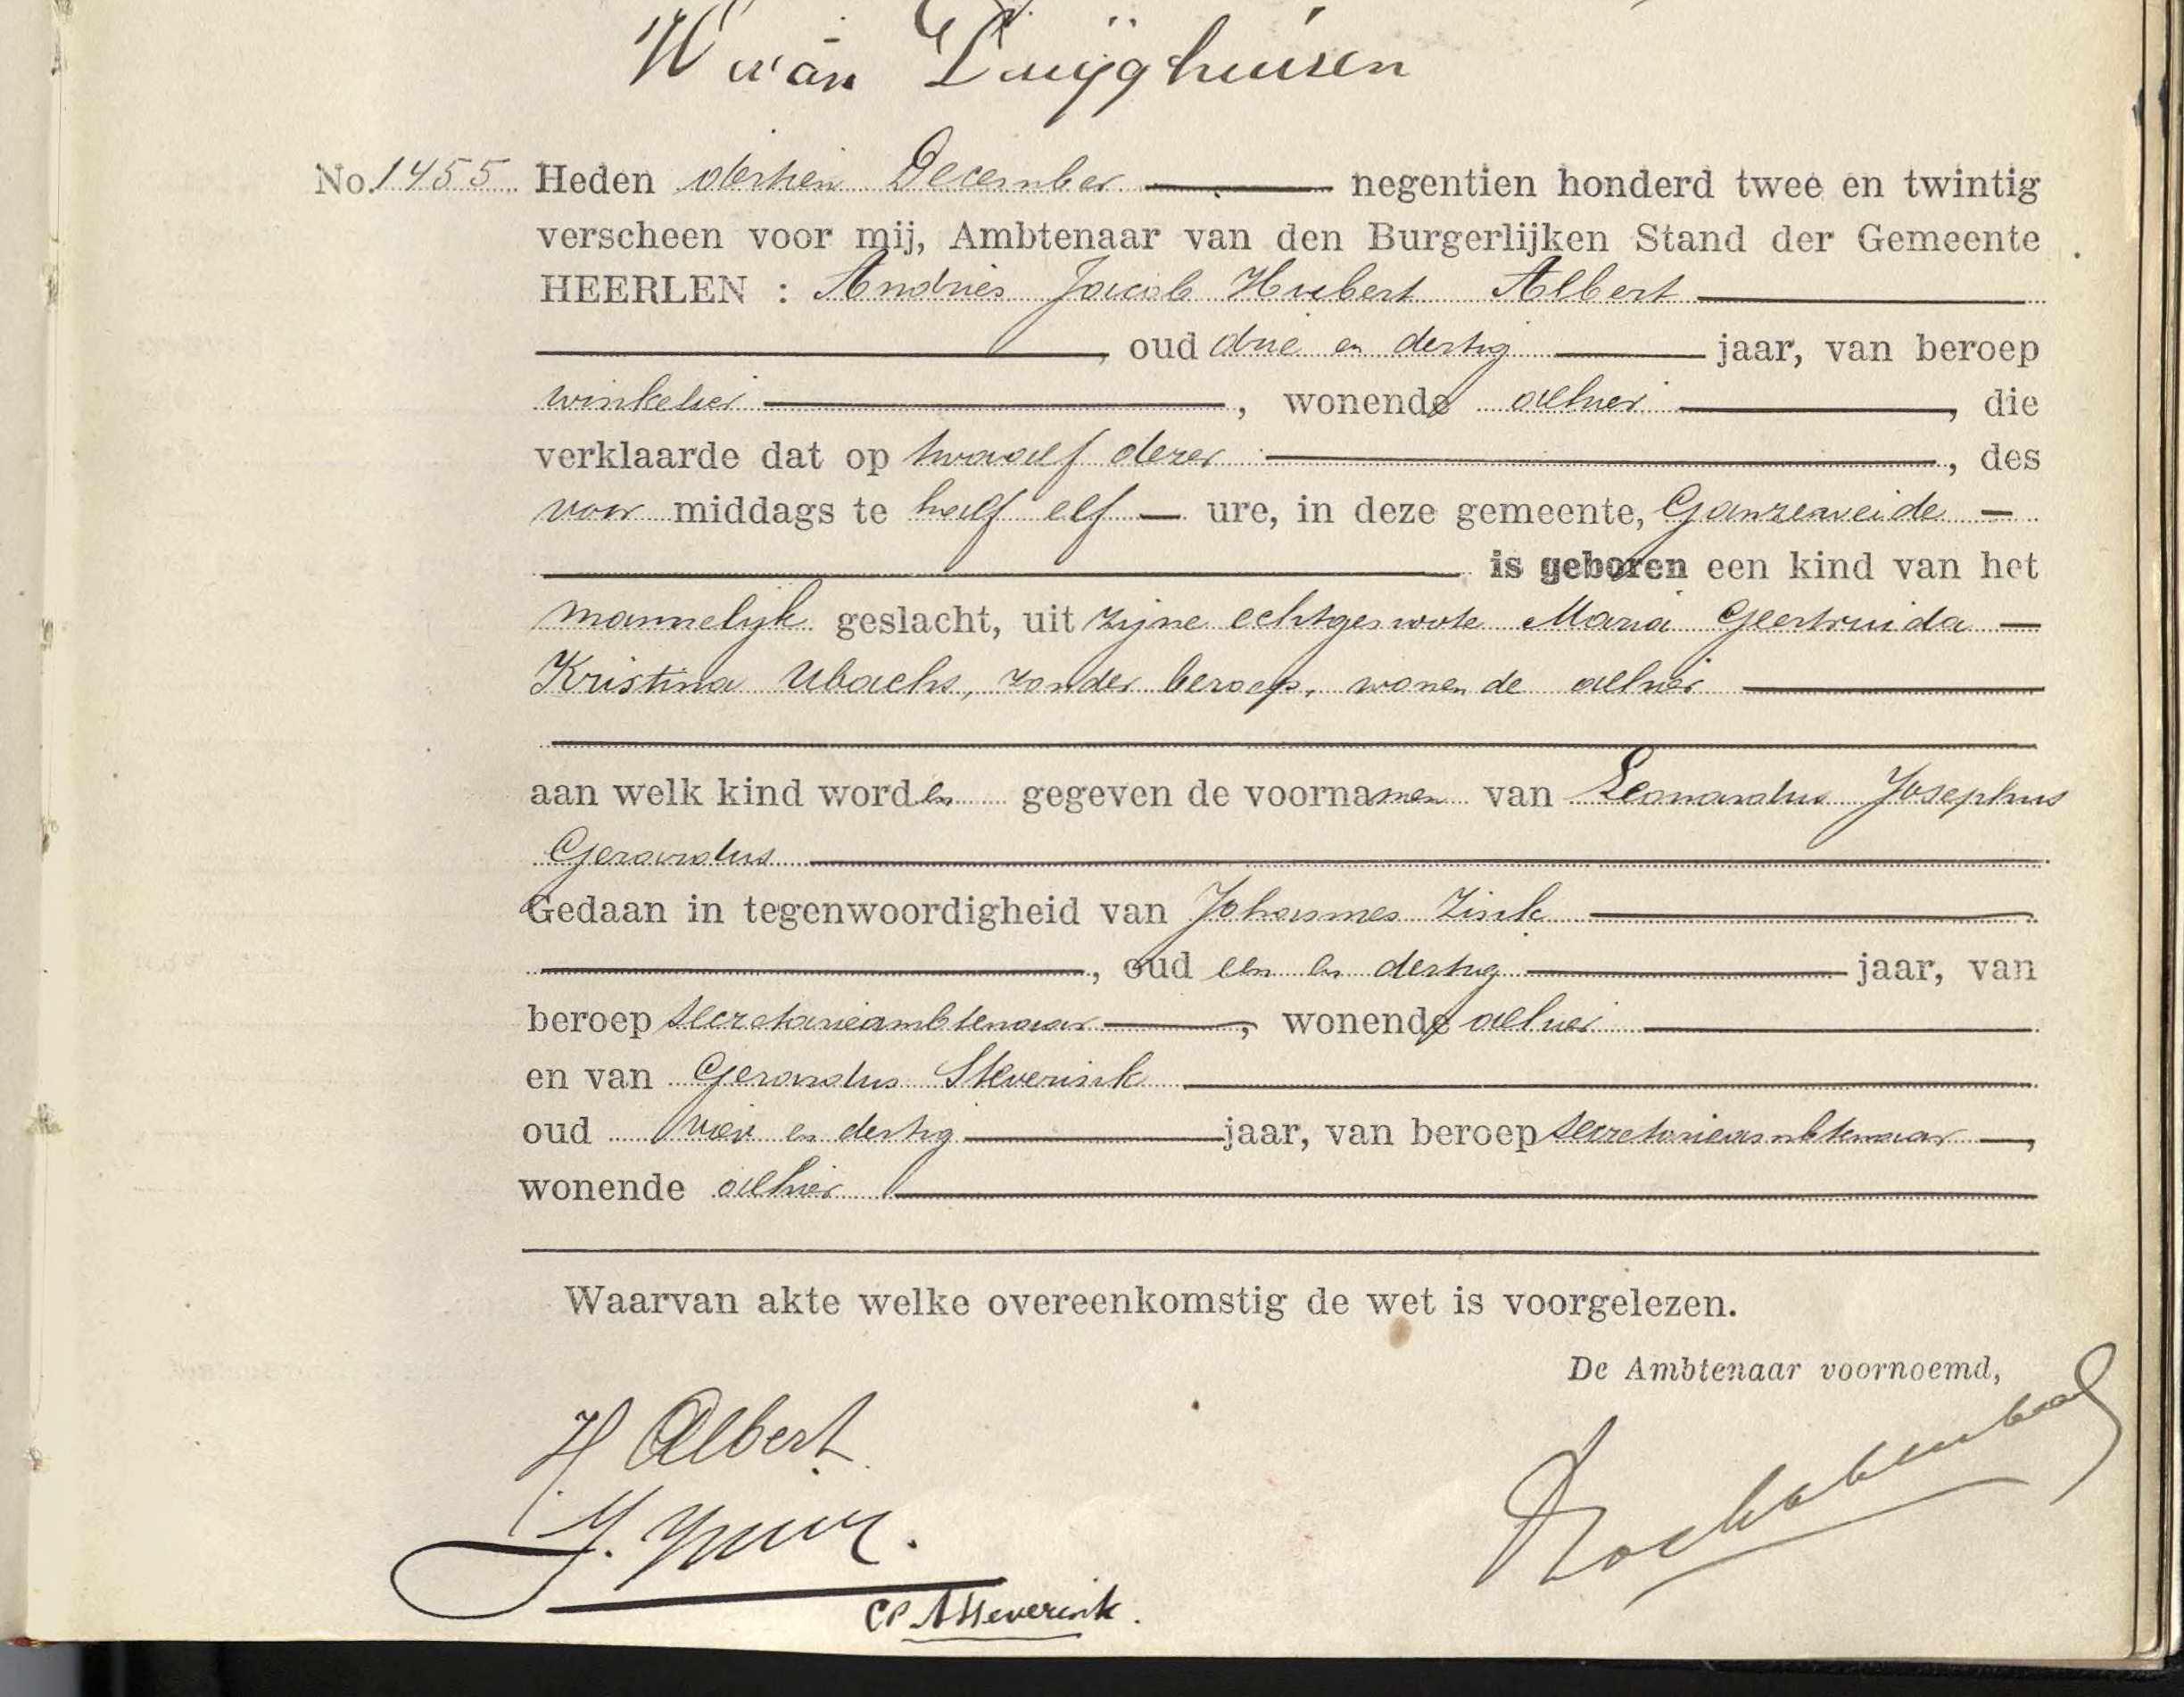 W van
No. 1455 Heden dertien December negentien honderd twee en twintig
verscheen voor mij, Ambtenaar van den Burgerlijken Stand der Gemeente
HEERLEN : Andries Jacob Hubert Albert
, oud drie en dertig jaar, van beroep
winkelier , wonende alhier , die
verklaarde dat op twaalf dezer , des
voor middags te half elf — ure, in deze gemeente, Ganzeweide —
is geboren een kind van het
mannelijk geslacht, uit zijne echtgenoote Maria Geertruida —
Kristina Ubachs, zonder beroep, wonende alhier
aan welk kind worden gegeven de voornamen van Leonardus Josephus
Gerardus
Gedaan in tegenwoordigheid van Johannes Zink
, oud een en dertig jaar, van
beroep secretarieambtenaar , wonende alhier
en van Gerardus Steverink
oud vier en dertig jaar, van beroep secretarieambtenaar —,
wonende alhier
Waarvan akte welke overeenkomstig de wet is voorgelezen.
De Ambtenaar voornoemd,
H Albert
J.
Steverink.